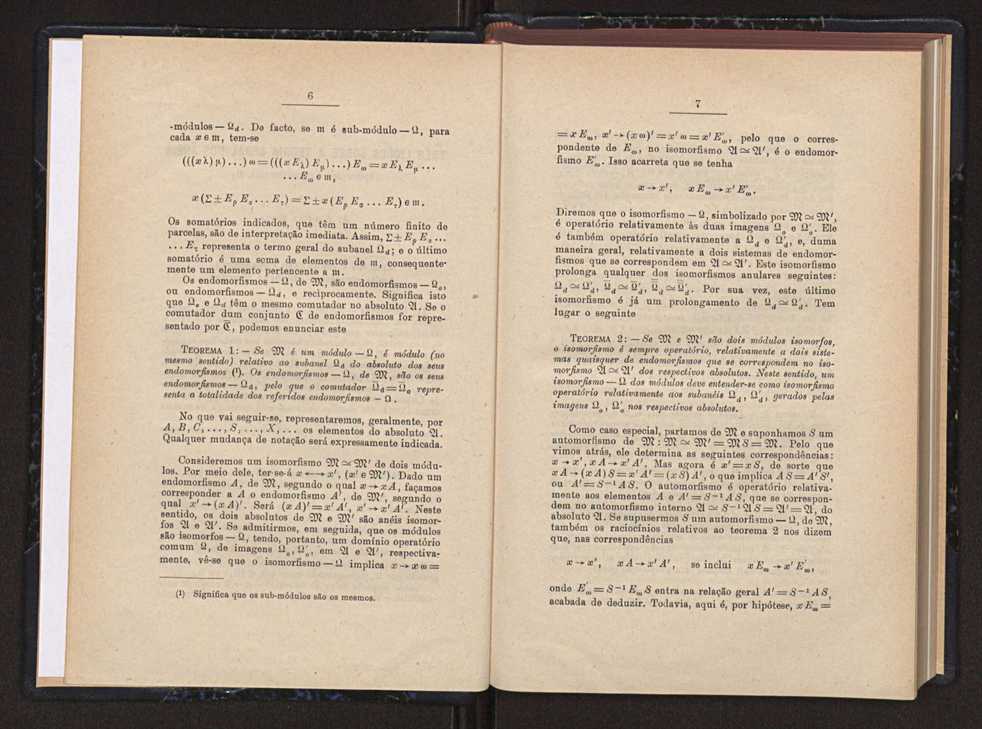 6
-módulos — Ω_d. De facto, se m é sub-módulo — Ω, para
cada x e m, tem-se
(((xλ)μ)...)ω = (((xE_λ)E_μ)...)E_ω = xE_λ E_μ ...
... E_ω e m,
x(Σ ± E_ρ E_σ ... E_τ) = Σ ± x(E_ρ E_σ ... E_τ) e m.
Os somatórios indicados, que têm um número finito de
parcelas, são de interpretação imediata. Assim, Σ ± E_ρ E_σ ...
... E_τ representa o termo geral do subanel Ω_d; e o último
somatório é uma soma de elementos de m, consequente-
mente um elemento pertencente a m.
Os endomorfismos — Ω, de 𝔐, são endomorfismos — Ω_a,
ou endomorfismos — Ω_d, e recìprocamente. Significa isto
que Ω_a e Ω_d têm o mesmo comutador no absoluto 𝔄. Se o
comutador dum conjunto ℭ de endomorfismos for repre-
sentado por ℭ̄, podemos enunciar este
TEOREMA 1: — Se 𝔐 é um módulo — Ω, é módulo (no
mesmo sentido) relativo ao subanel Ω_d do absoluto dos seus
endomorfismos (¹). Os endomorfismos — Ω, de 𝔐, são os seus
endomorfismos — Ω_d, pelo que o comutador Ω̄_d = Ω̄_a repre-
senta a totalidade dos referidos endomorfismos — Ω.
No que vai seguir-se, representaremos, geralmente, por
A, B, C, ..., S, ..., X, ... os elementos do absoluto 𝔄.
Qualquer mudança de notação será expressamente indicada.
Consideremos um isomorfismo 𝔐 ≃ 𝔐' de dois módu-
los. Por meio dele, ter-se-á x ←→ x', (x' e 𝔐'). Dado um
endomorfismo A, de 𝔐, segundo o qual x → xA, façamos
corresponder a A o endomorfismo A', de 𝔐', segundo o
qual x' → (xA)'. Será (xA)' = x'A', x' → x'A'. Neste
sentido, os dois absolutos de 𝔐 e 𝔐' são anéis isomor-
fos 𝔄 e 𝔄'. Se admitirmos, em seguida, que os módulos
são isomorfos — Ω, tendo, portanto, um domínio operatório
comum Ω, de imagens Ω_a, Ω'_a, em 𝔄 e 𝔄', respectiva-
mente, vê-se que o isomorfismo — Ω implica x → xω =
(¹) Significa que os sub-módulos são os mesmos.
7
= xE_ω, x' → (xω)' = x'ω = x'E'_ω, pelo que o corres-
pondente de E_ω, no isomorfismo 𝔄 ≃ 𝔄', é o endomor-
fismo E'_ω. Isso acarreta que se tenha
x → x', xE_ω → x'E'_ω.
Diremos que o isomorfismo — Ω, simbolizado por 𝔐 ≃ 𝔐',
é operatório relativamente às duas imagens Ω_a e Ω'_a. Ele
é também operatório relativamente a Ω_d e Ω'_d, e, duma
maneira geral, relativamente a dois sistemas de endomor-
fismos que se correspondem em 𝔄 ≃ 𝔄'. Este isomorfismo
prolonga qualquer dos isomorfismos anulares seguintes:
Ω_d ≃ Ω'_d, Ω̄_d ≃ Ω̄'_d, Ω̿_d ≃ Ω̿'_d. Por sua vez, este último
isomorfismo é já um prolongamento de Ω_d ≃ Ω'_d. Tem
lugar o seguinte
TEOREMA 2: — Se 𝔐 e 𝔐' são dois módulos isomorfos,
o isomorfismo é sempre operatório, relativamente a dois siste-
mas quaisquer de endomorfismos que se correspondem no iso-
morfismo 𝔄 ≃ 𝔄' dos respectivos absolutos. Neste sentido, um
isomorfismo — Ω dos módulos deve entender-se como isomorfismo
operatório relativamente aos subanéis Ω_d, Ω'_d, gerados pelas
imagens Ω_a, Ω'_a nos respectivos absolutos.
Como caso especial, partamos de 𝔐 e suponhamos S um
automorfismo de 𝔐 : 𝔐 ≃ 𝔐' = 𝔐S = 𝔐. Pelo que
vimos atrás, ele determina as seguintes correspondências:
x → x', xA → x'A'. Mas agora é x' = xS, de sorte que
xA → (xA)S = x'A' = (xS)A', o que implica AS = A'S',
ou A' = S⁻¹AS. O automorfismo é operatório relativa-
mente aos elementos A e A' = S⁻¹AS, que se correspon-
dem no automorfismo interno 𝔄 ≃ S⁻¹𝔄S = 𝔄' = 𝔄, do
absoluto 𝔄. Se supusermos S um automorfismo — Ω, de 𝔐,
também os raciocínios relativos ao teorema 2 nos dizem
que, nas correspondências
x → x', xA → x'A', se inclui xE_ω → x'E'_ω,
onde E'_ω = S⁻¹E_ωS entra na relação geral A' = S⁻¹AS,
acabada de deduzir. Todavia, aqui é, por hipótese, xE_ω =